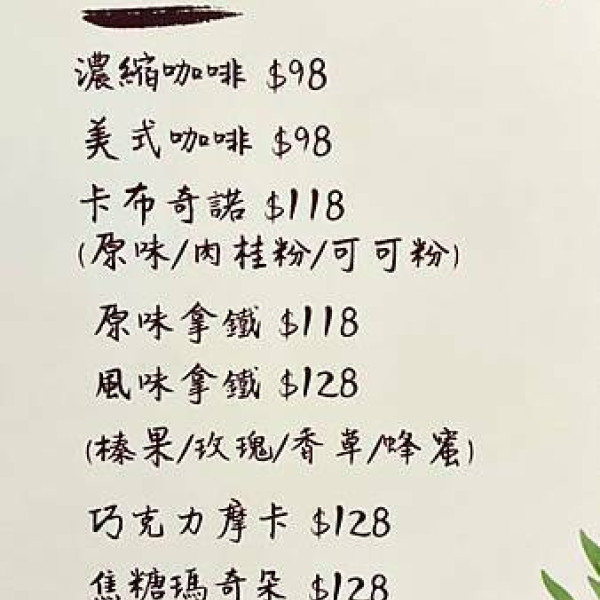 濃縮咖啡 $98
美式咖啡 $98
卡布奇諾 $118
(原味/肉桂粉/可可粉)
原味拿鐵 $118
風味拿鐵 $128
(榛果/玫瑰/香草/蜂蜜)
巧克力摩卡 $128
焦糖瑪奇朵 $128